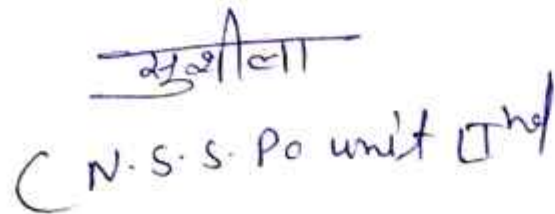 सुशीला
( N.S.S. Po unit IInd